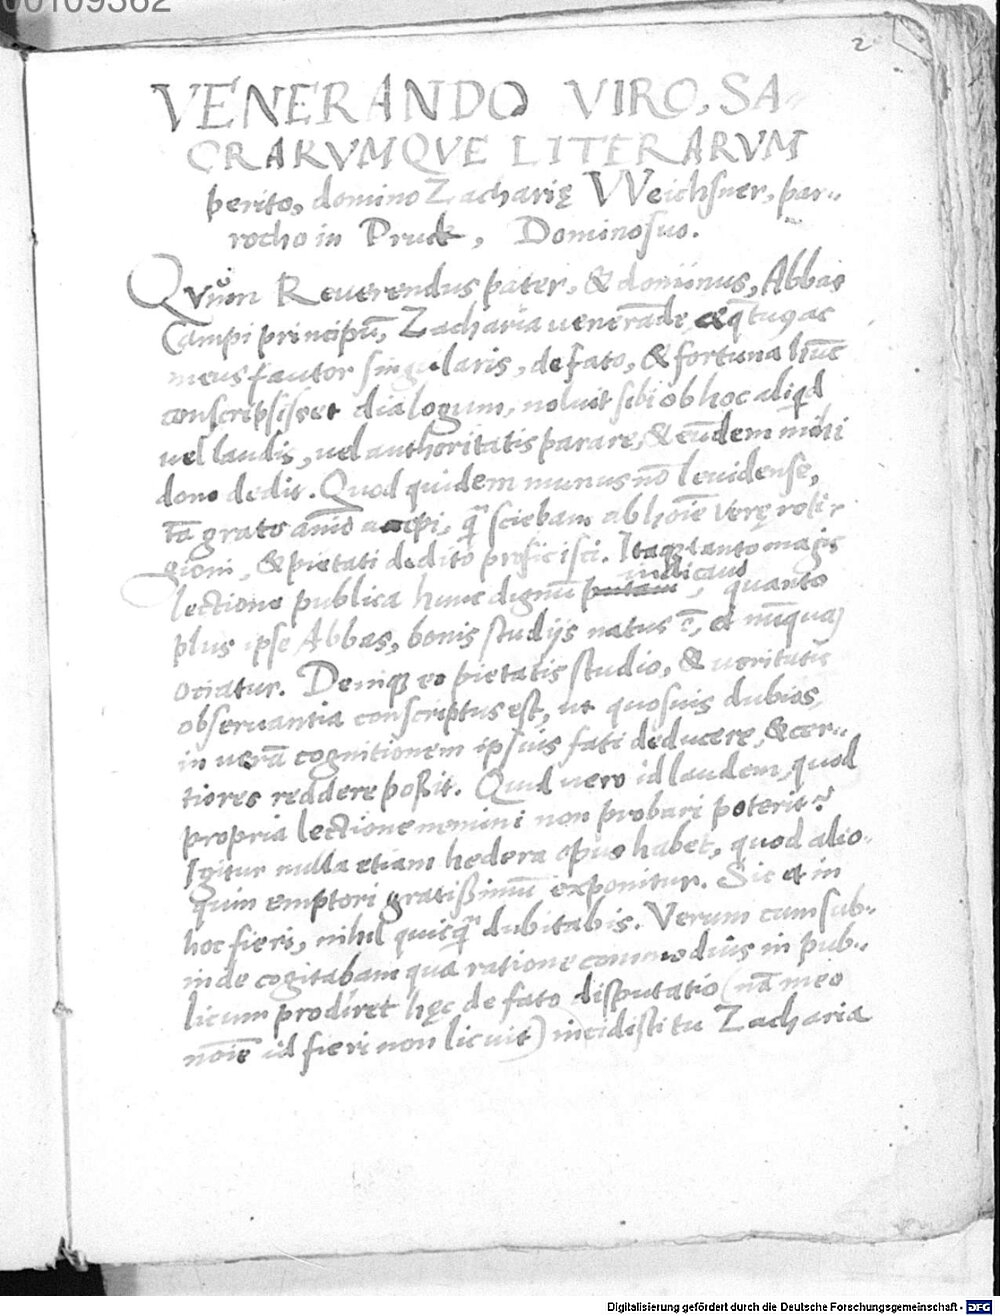 00109362
2
VENERANDO VIRO, SA-
CRARVMQVE LITERARVM
perito, domino Zacharię VVeichsner, par-
rocho in Pruck, Domino suo.
Quum Reuerendus pater, & dominus, Abbas
Campi principū, Zacharia venerāde, æq̄ tuus ac
meus fautor singularis, de fato, & fortuna hūc
conscripsisset dialogum, noluit sibi ob hoc aliqd
vel laudis, vel authoritatis parare, & eūdem mihi
dono dedit. Quod quidem munus nō leuidense,
tā grato aīo accepi, q̄ sciebam ab hoīe verę reli-
gioni, & pietati dedito proficisci. Itaq; tanto magis
iudicaui
lectione publica hunc dignū putaui, quanto
plus ipse Abbas, bonis studijs natus ē, et nūquā
ociatur. Deniq; eo pietatis studio, & veritatis
obseruantia conscriptus est, ut quosuis dubios,
in verā cognitionem ipsius fati deducere, & cer-
tiores reddere poßit. Quid vero id laudem, quod
propria lectione nemini non probari poterit?
Igitur nulla etiam hedera opus habet, quod alio-
quin emptori gratißimū exponitur. Sic et in
hoc fieri, nihil quicq̄ dubitabis. Verum cum sub-
inde cogitabam qua ratione commodius in pub-
licum prodiret hęc de fato disputatio (nā meo
noīe id fieri non licuit) incidisti tu Zacharia
Digitalisierung gefördert durch die Deutsche Forschungsgemeinschaft - DFG